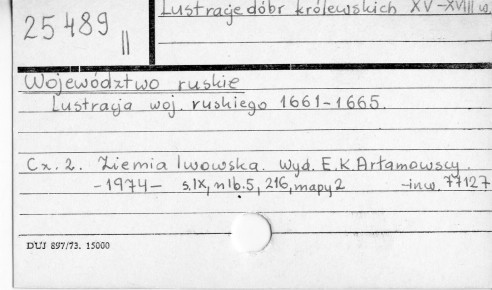 Lustracje dóbr królewskich XV-XVIII w.
25489 II
Województwo ruskie
Lustracja woj. ruskiego 1661-1665.
Cz. 2. Ziemia lwowska. Wyd. E.K. Arłamowscy.
-1974- s. IX, nlb. 5, 216, mapy 2 -inw. 77127
DUJ 897/73. 15000